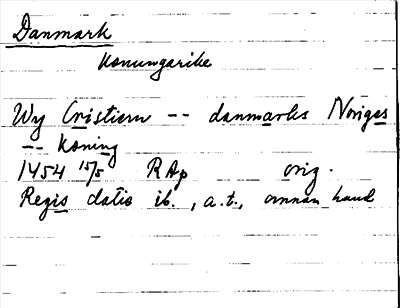 Danmark
konungarike
Wy Cristiern -- danmarks Noriges
-- koning
1454 15/5 RAp orig.
Regis datis ib., a.t., annan hand